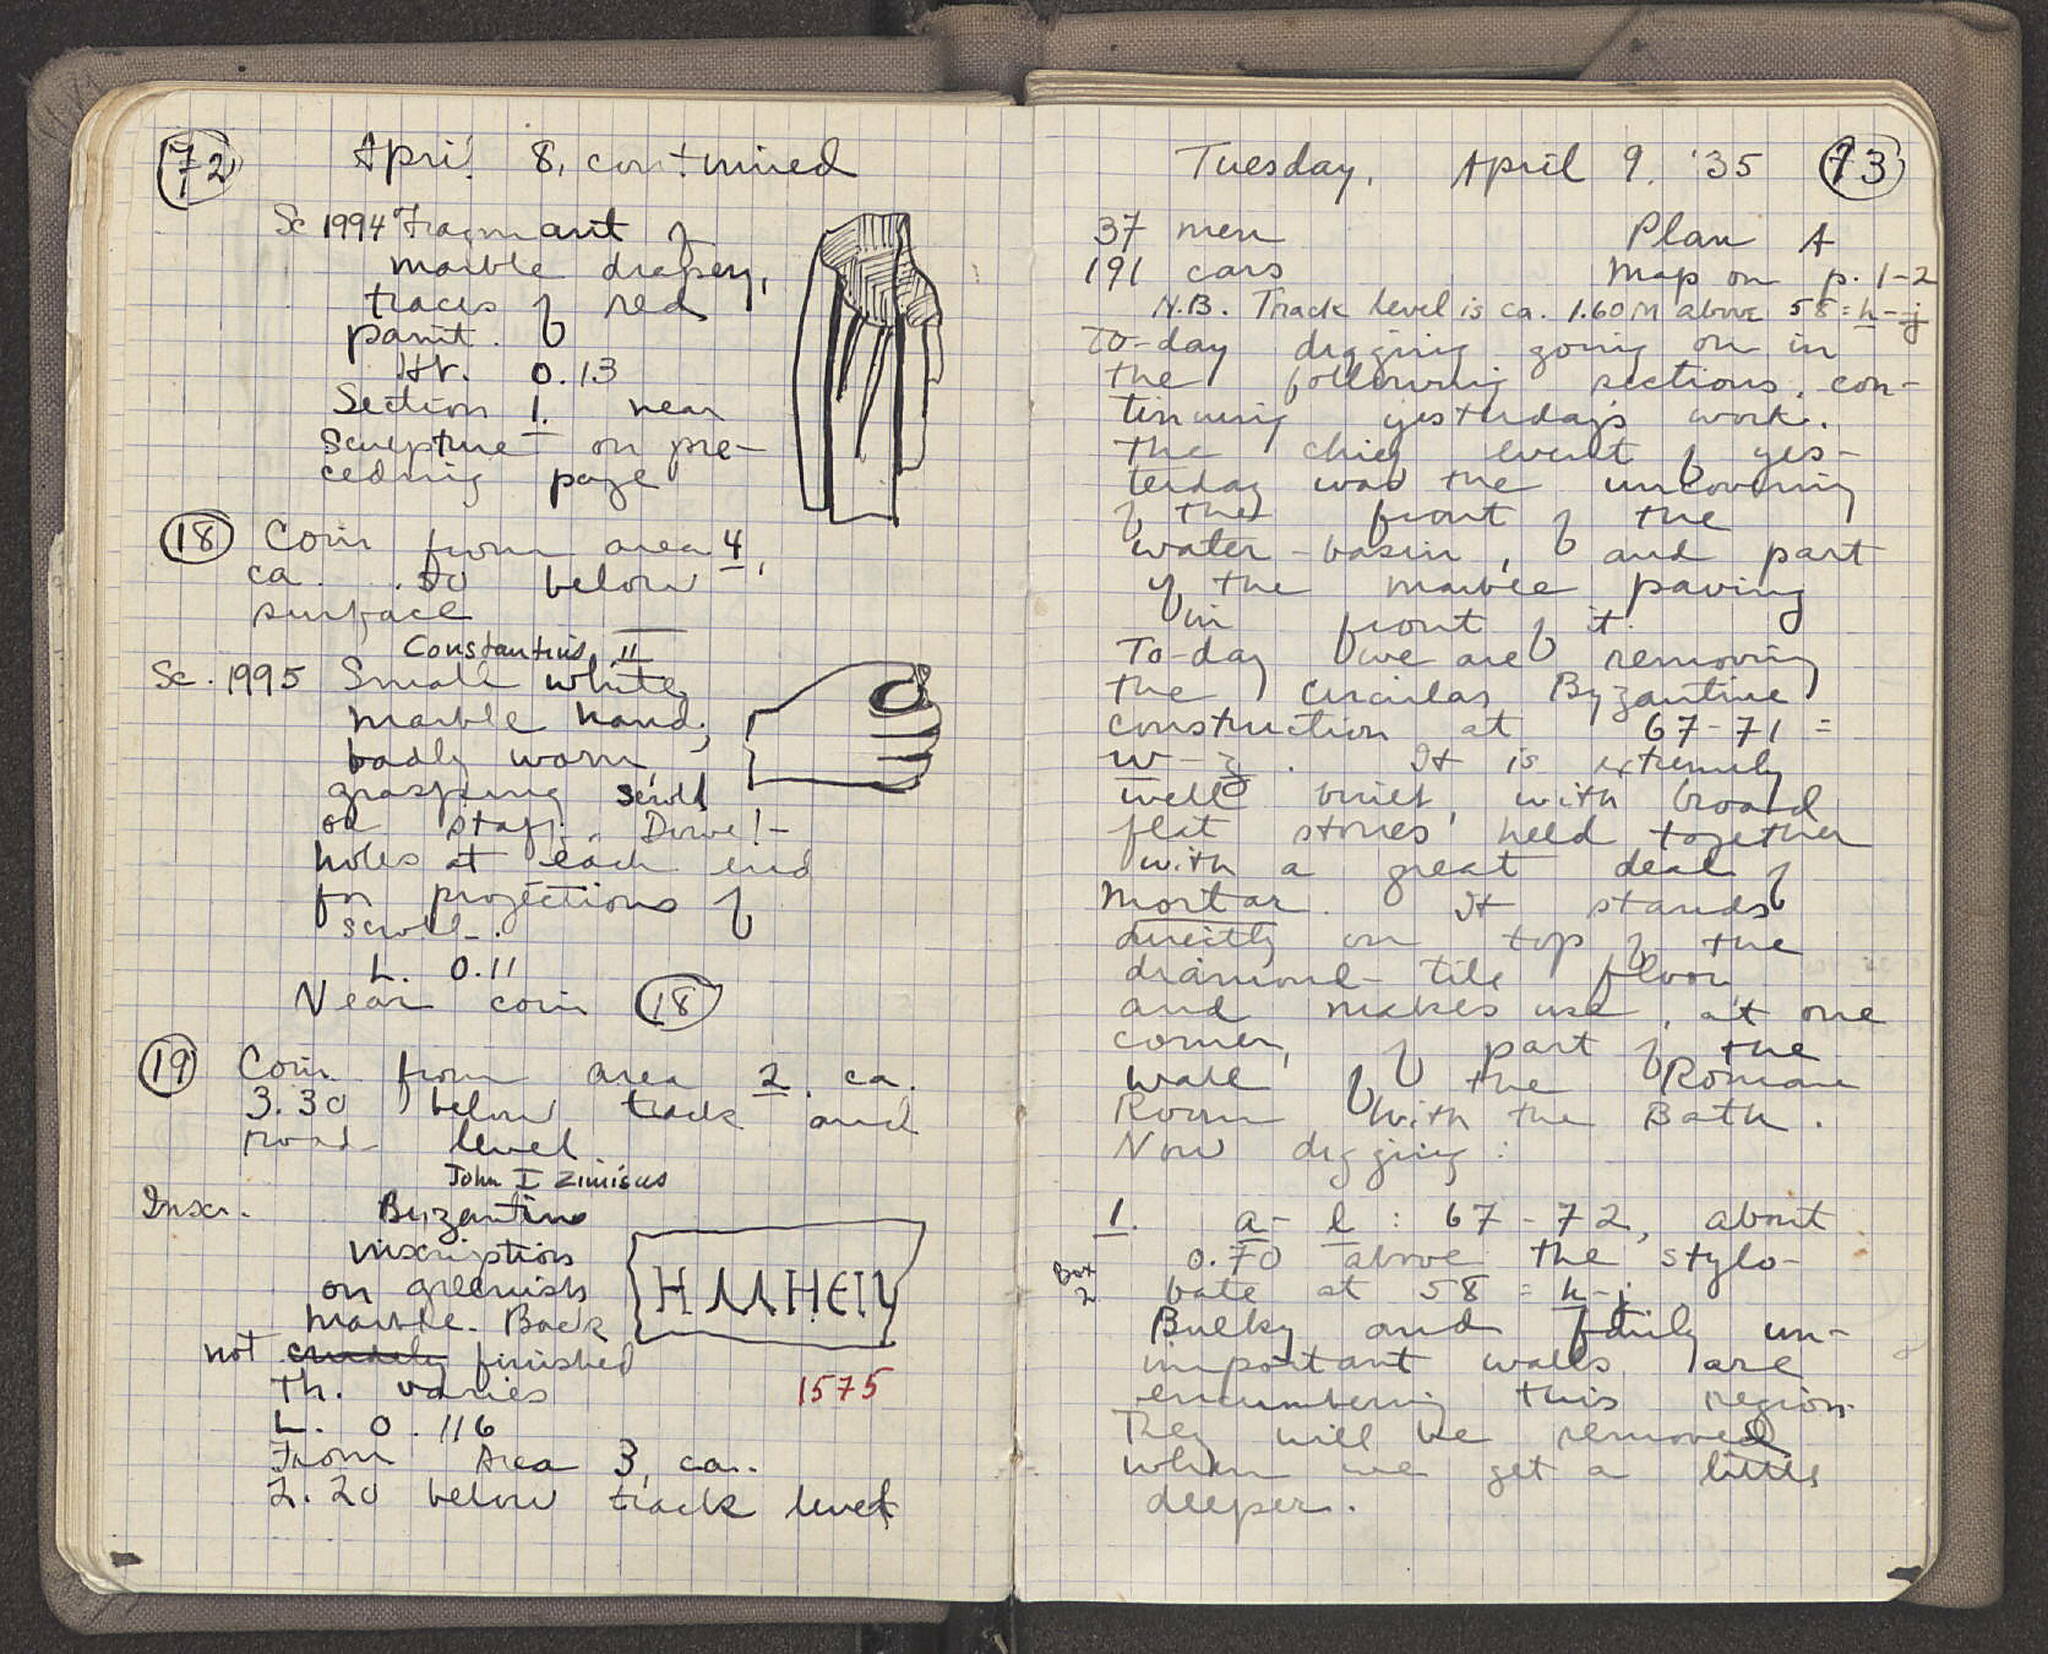 72
April 8, continued
Sc 1994 Fragment of
marble drapery,
traces of red
paint.
Ht. 0.13
Section 1. near
sculpture on pre-
ceding page
18 Coin from area 4,
ca. .50 below
surface
Constantius II
Sc. 1995 Small white
marble hand,
badly worn,
grasping scroll
or staff. Dowel-
holes at each end
for projections of
scroll.
L. 0.11
Near coin 18
19 Coin from area 2, ca.
3.30 below track and
road level
John I Zimiscus
Inscr. Byzantine
inscription
on greenish
marble. Back
not crudely finished
Th. varies
L. 0.116
From Area 3, ca.
2.20 below track level
ΗΜΗΕΙΥ
1575
Tuesday, April 9. '35 73
37 men Plan A
191 cars Map on p. 1-2
N.B. Track level is ca. 1.60 M above 58 = h-j
To-day digging going on in
the following sections, con-
tinuing yesterday's work.
The chief event of yes-
terday was the uncovering
of the front of the
water-basin, and part
of the marble paving
in front of it.
To-day we are removing
the circular Byzantine
construction at 67-71 =
w-z. It is extremely
well built, with broad
flat stones held together
with a great deal of
mortar. It stands
directly on top of the
diamond-tile floor
and makes use, at one
corner, of part of the
wall of the Roman
Room with the Bath.
Now digging:
1. a-l: 67-72, about
0.70 above the stylo-
Box
2
bate at 58 = h-j
Bulky and fairly un-
important walls are
encumbering this region.
They will be removed
when we get a little
deeper.